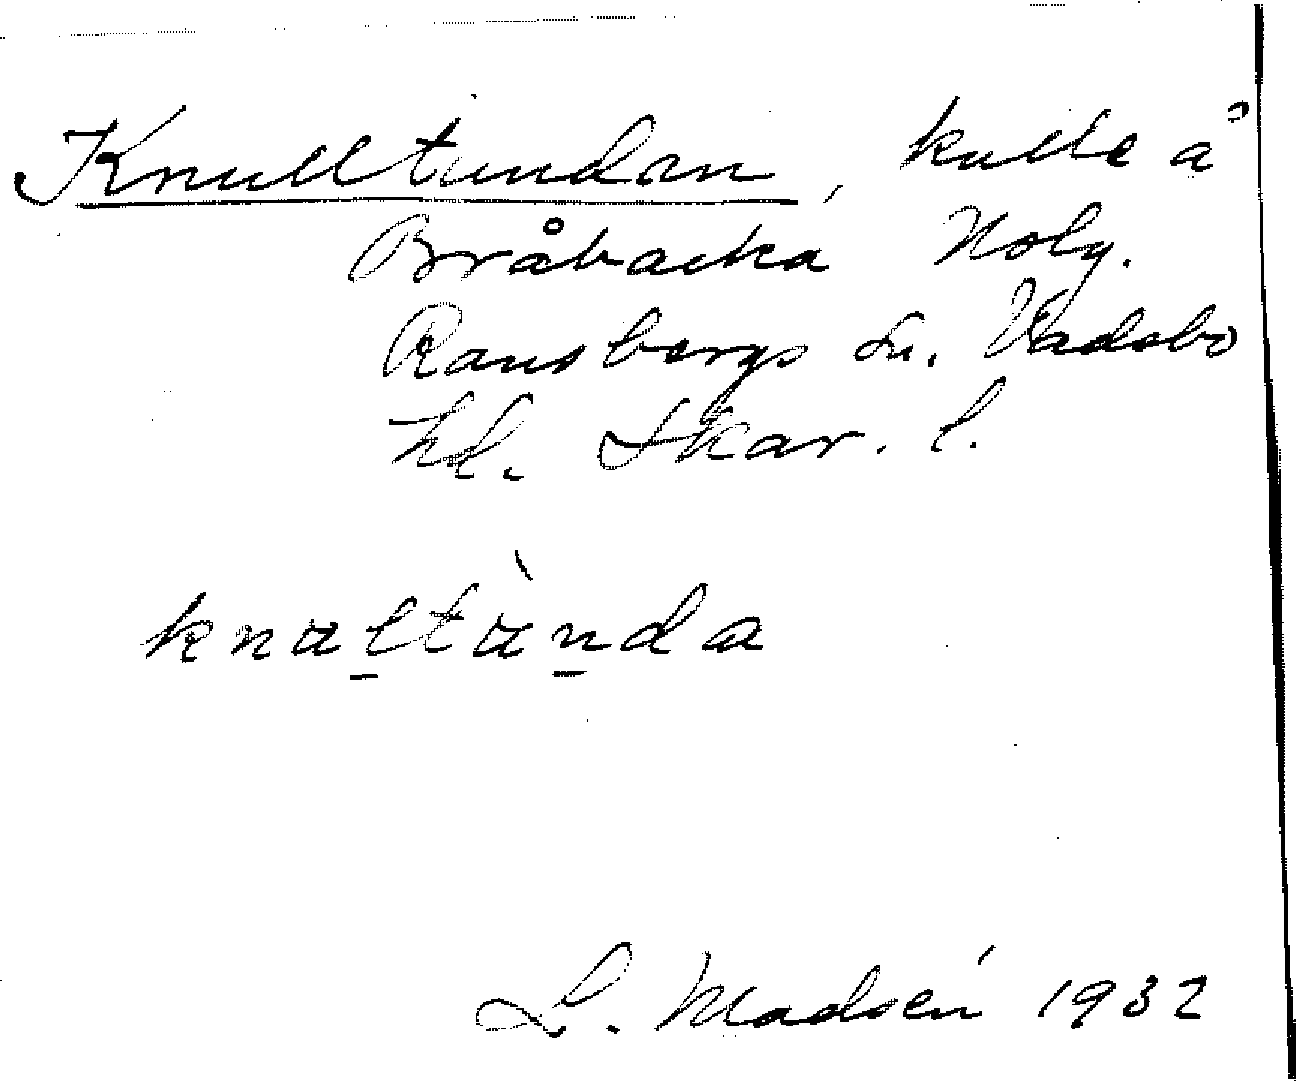 Knulltundan, kulle å
Bråbacka Nolg.
Ransbergs sn. Vadsbo
hd. Skar. l.
knultùnda
L. Madsén 1932